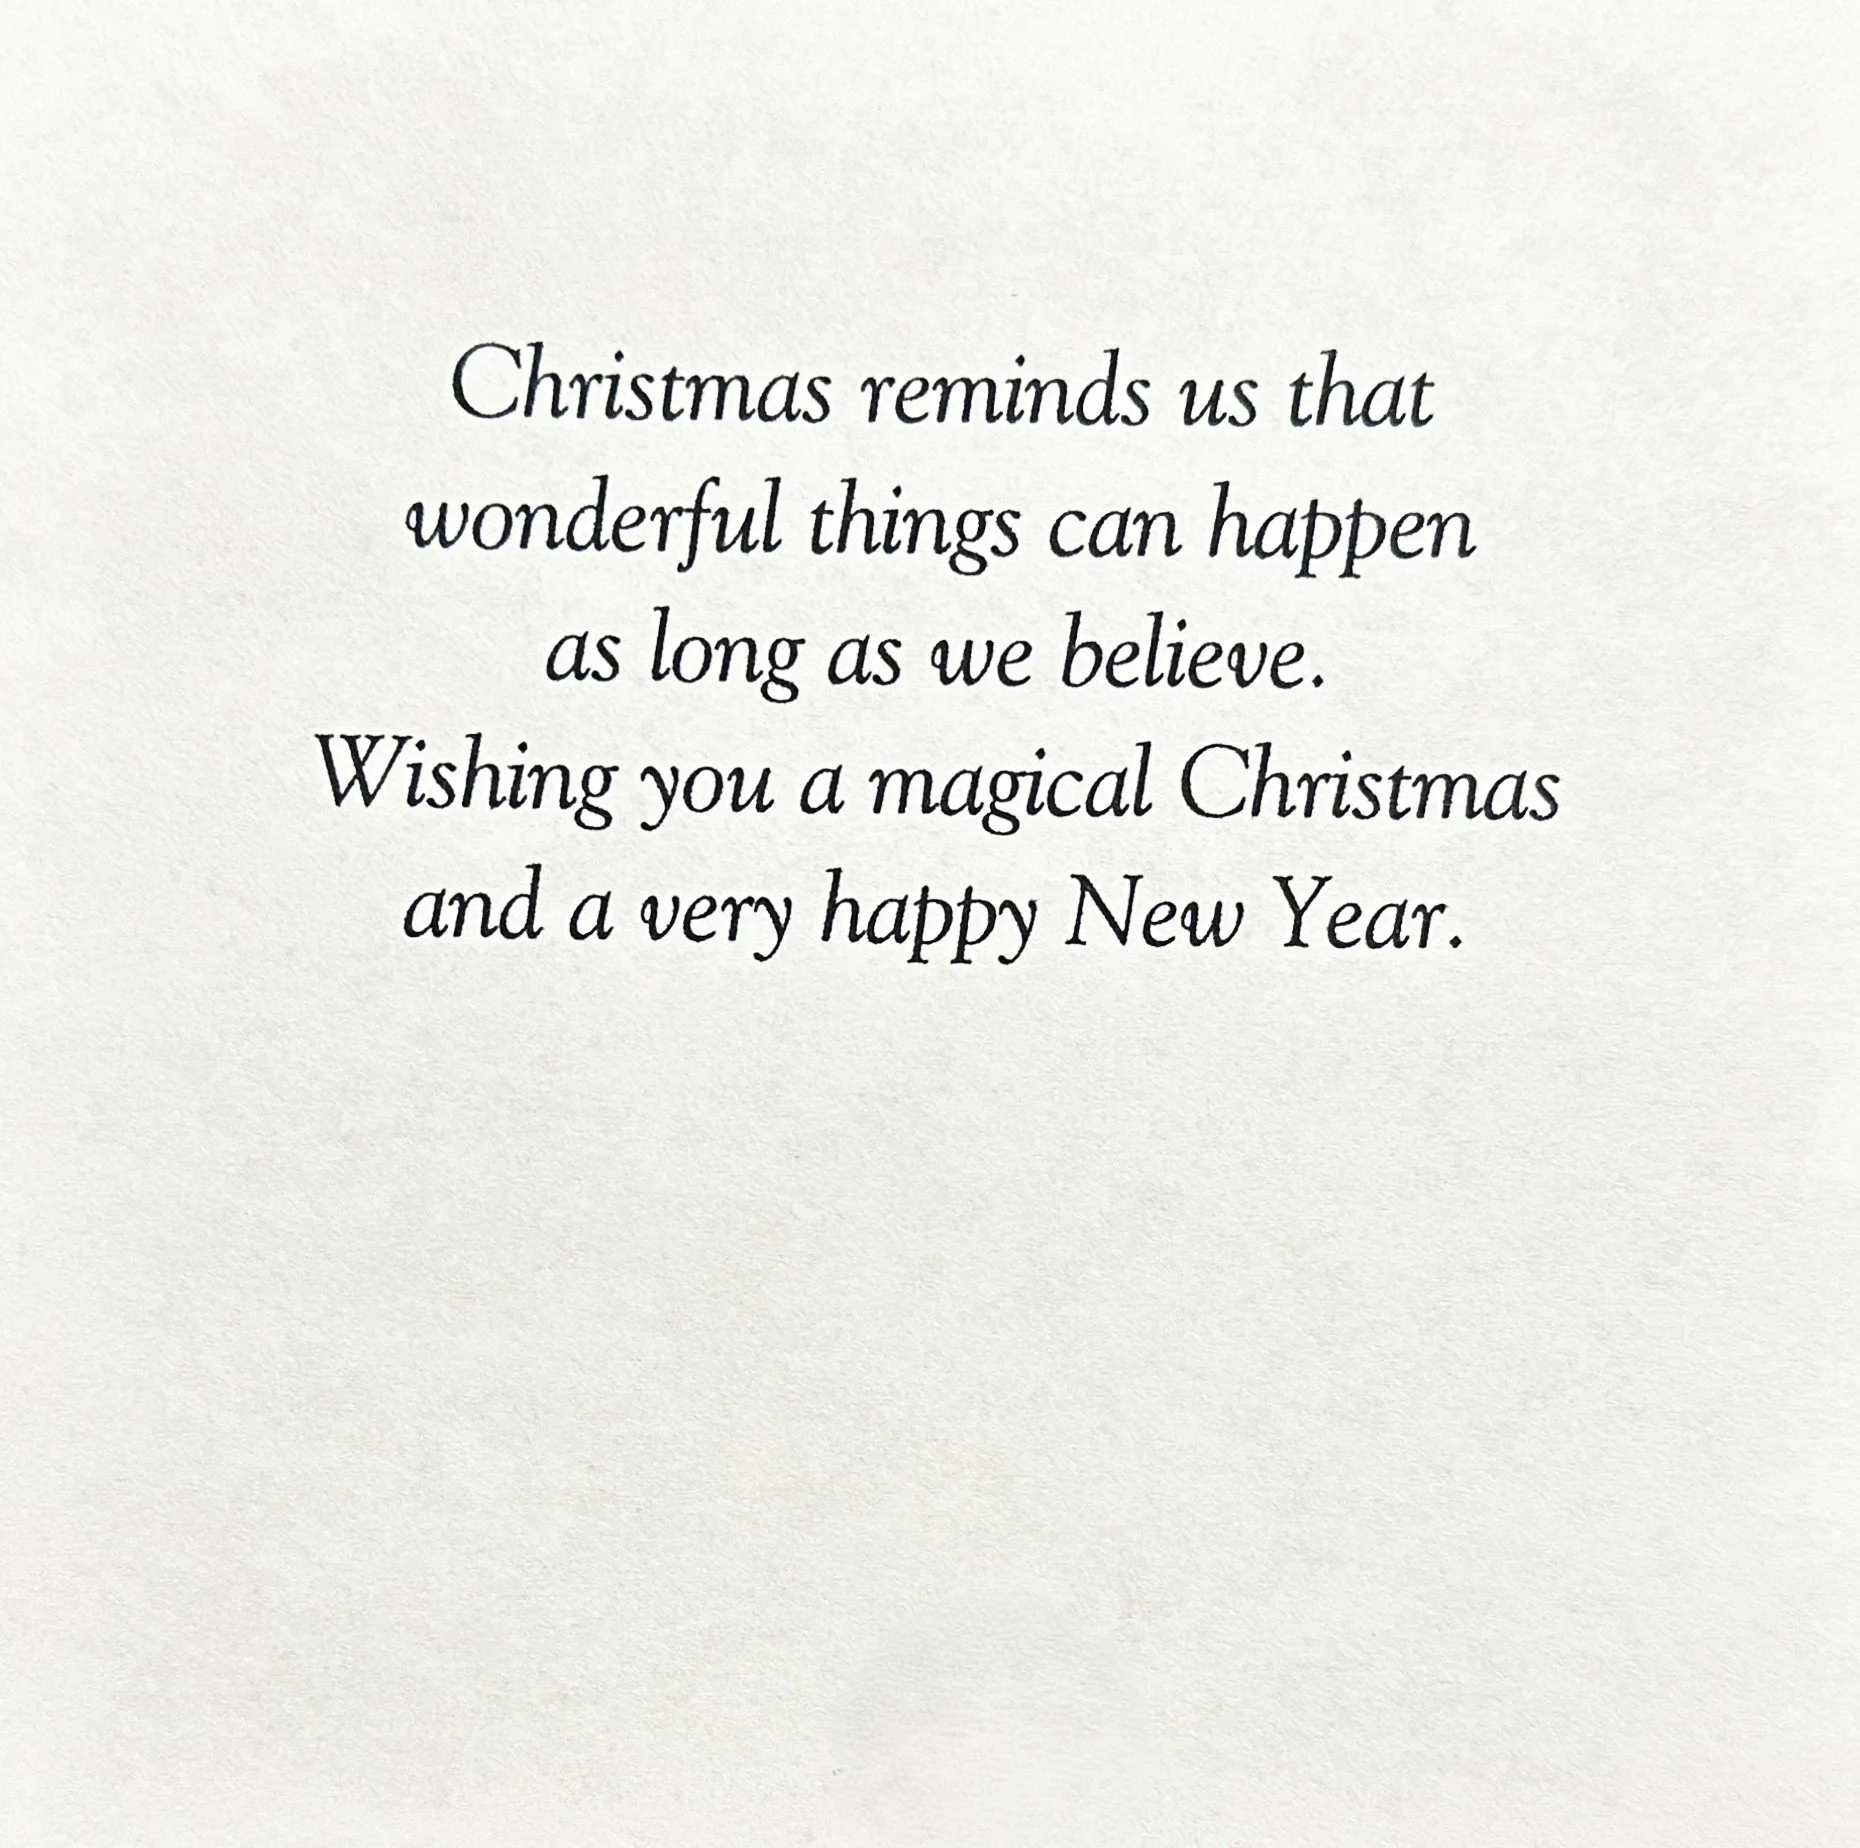 Christmas reminds us that
wonderful things can happen
as long as we believe.
Wishing you a magical Christmas
and a very happy New Year.